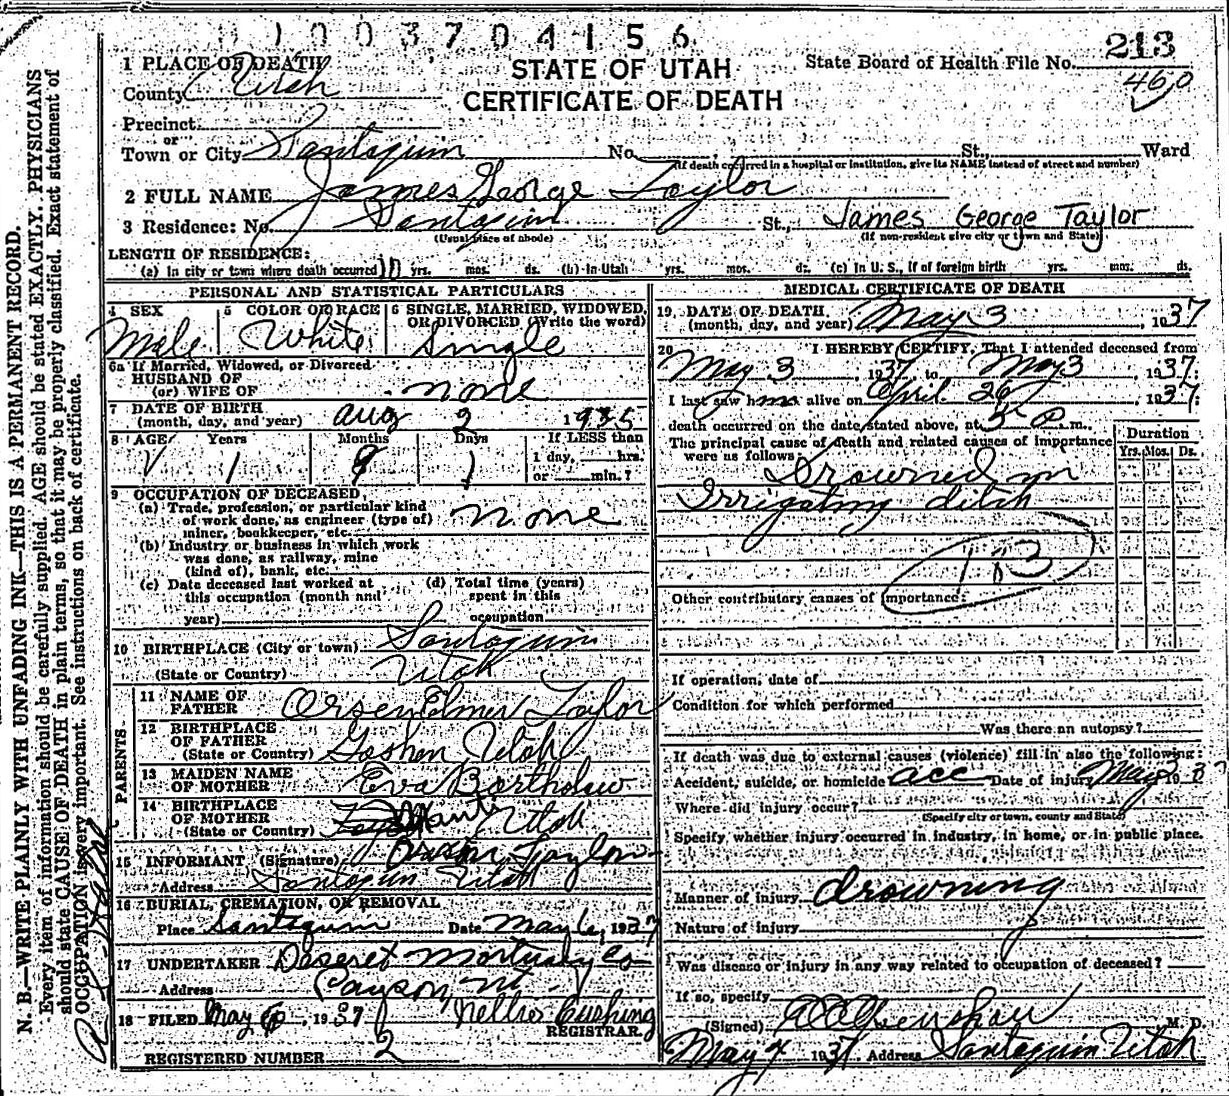 1003704156
STATE OF UTAH
CERTIFICATE OF DEATH
State Board of Health File No. 213
460
1 PLACE OF DEATH
County Utah
Precinct
or
Town or City Santaquin No. St., Ward
(If death occurred in a hospital or institution, give its NAME instead of street and number)
2 FULL NAME James George Taylor
3 Residence: No. Santaquin St., James George Taylor
(Usual place of abode) (If non-resident give city or town and State)
LENGTH OF RESIDENCE:
(a) In city or town where death occurred yrs. mos. ds. (b) In Utah yrs. mos. ds. (c) In U. S., if of foreign birth yrs. mos. ds.
PERSONAL AND STATISTICAL PARTICULARS
4 SEX
Male
5 COLOR OR RACE
White
6 SINGLE, MARRIED, WIDOWED,
OR DIVORCED (Write the word)
Single
6a If Married, Widowed, or Divorced
HUSBAND OF
(or) WIFE OF none
7 DATE OF BIRTH
(month, day, and year) Aug 2 1935
8 AGE Years Months Days If LESS than
1 9 1 1 day, hrs.
or min.?
9 OCCUPATION OF DECEASED,
(a) Trade, profession, or particular kind
of work done, as engineer (type of)
miner, bookkeeper, etc. none
(b) Industry or business in which work
was done, as railway, mine
(kind of), bank, etc.
(c) Date deceased last worked at
this occupation (month and
year)
(d) Total time (years)
spent in this
occupation
10 BIRTHPLACE (City or town) Santaquin
(State or Country) Utah
PARENTS
11 NAME OF
FATHER Orsen Elmer Taylor
12 BIRTHPLACE
OF FATHER
(State or Country) Goshen Utah
13 MAIDEN NAME
OF MOTHER Eva Bartholow
14 BIRTHPLACE
OF MOTHER
(State or Country) Manti Utah
15 INFORMANT (Signature) Orson Taylor
Address Santaquin Utah
16 BURIAL, CREMATION, OR REMOVAL
Place Santaquin Date May 6, 1937
17 UNDERTAKER Deseret Mortuary Co
Address Payson Ut.
18 FILED May 6, 1937 Nellie Cushing
REGISTRAR.
REGISTERED NUMBER 2
MEDICAL CERTIFICATE OF DEATH
19 DATE OF DEATH
(month, day, and year) May 3, 1937
20 I HEREBY CERTIFY, That I attended deceased from
May 3 1937 to May 3, 1937:
I last saw him alive on April 26, 1937:
death occurred on the date stated above, at 5 P. m.
The principal cause of death and related causes of importance
were as follows:
Duration
Yrs. Mos. Ds.
Drowned in
Irrigating ditch
183
Other contributory causes of importance:
If operation, date of
Condition for which performed
Was there an autopsy?
If death was due to external causes (violence) fill in also the following:
Accident, suicide, or homicide acc Date of injury May 3 1937
Where did injury occur?
(Specify city or town, county and State)
Specify whether injury occurred in industry, in home, or in public place.
Manner of injury drowning
Nature of injury
Was disease or injury in any way related to occupation of deceased?
If so, specify
(Signed) M. D.
May 4 1937 Address Santaquin Utah
N. B.—WRITE PLAINLY WITH UNFADING INK—THIS IS A PERMANENT RECORD.
Every item of information should be carefully supplied. AGE should be stated EXACTLY. PHYSICIANS
should state CAUSE OF DEATH in plain terms, so that it may be properly classified. Exact statement of
OCCUPATION is very important. See instructions on back of certificate.